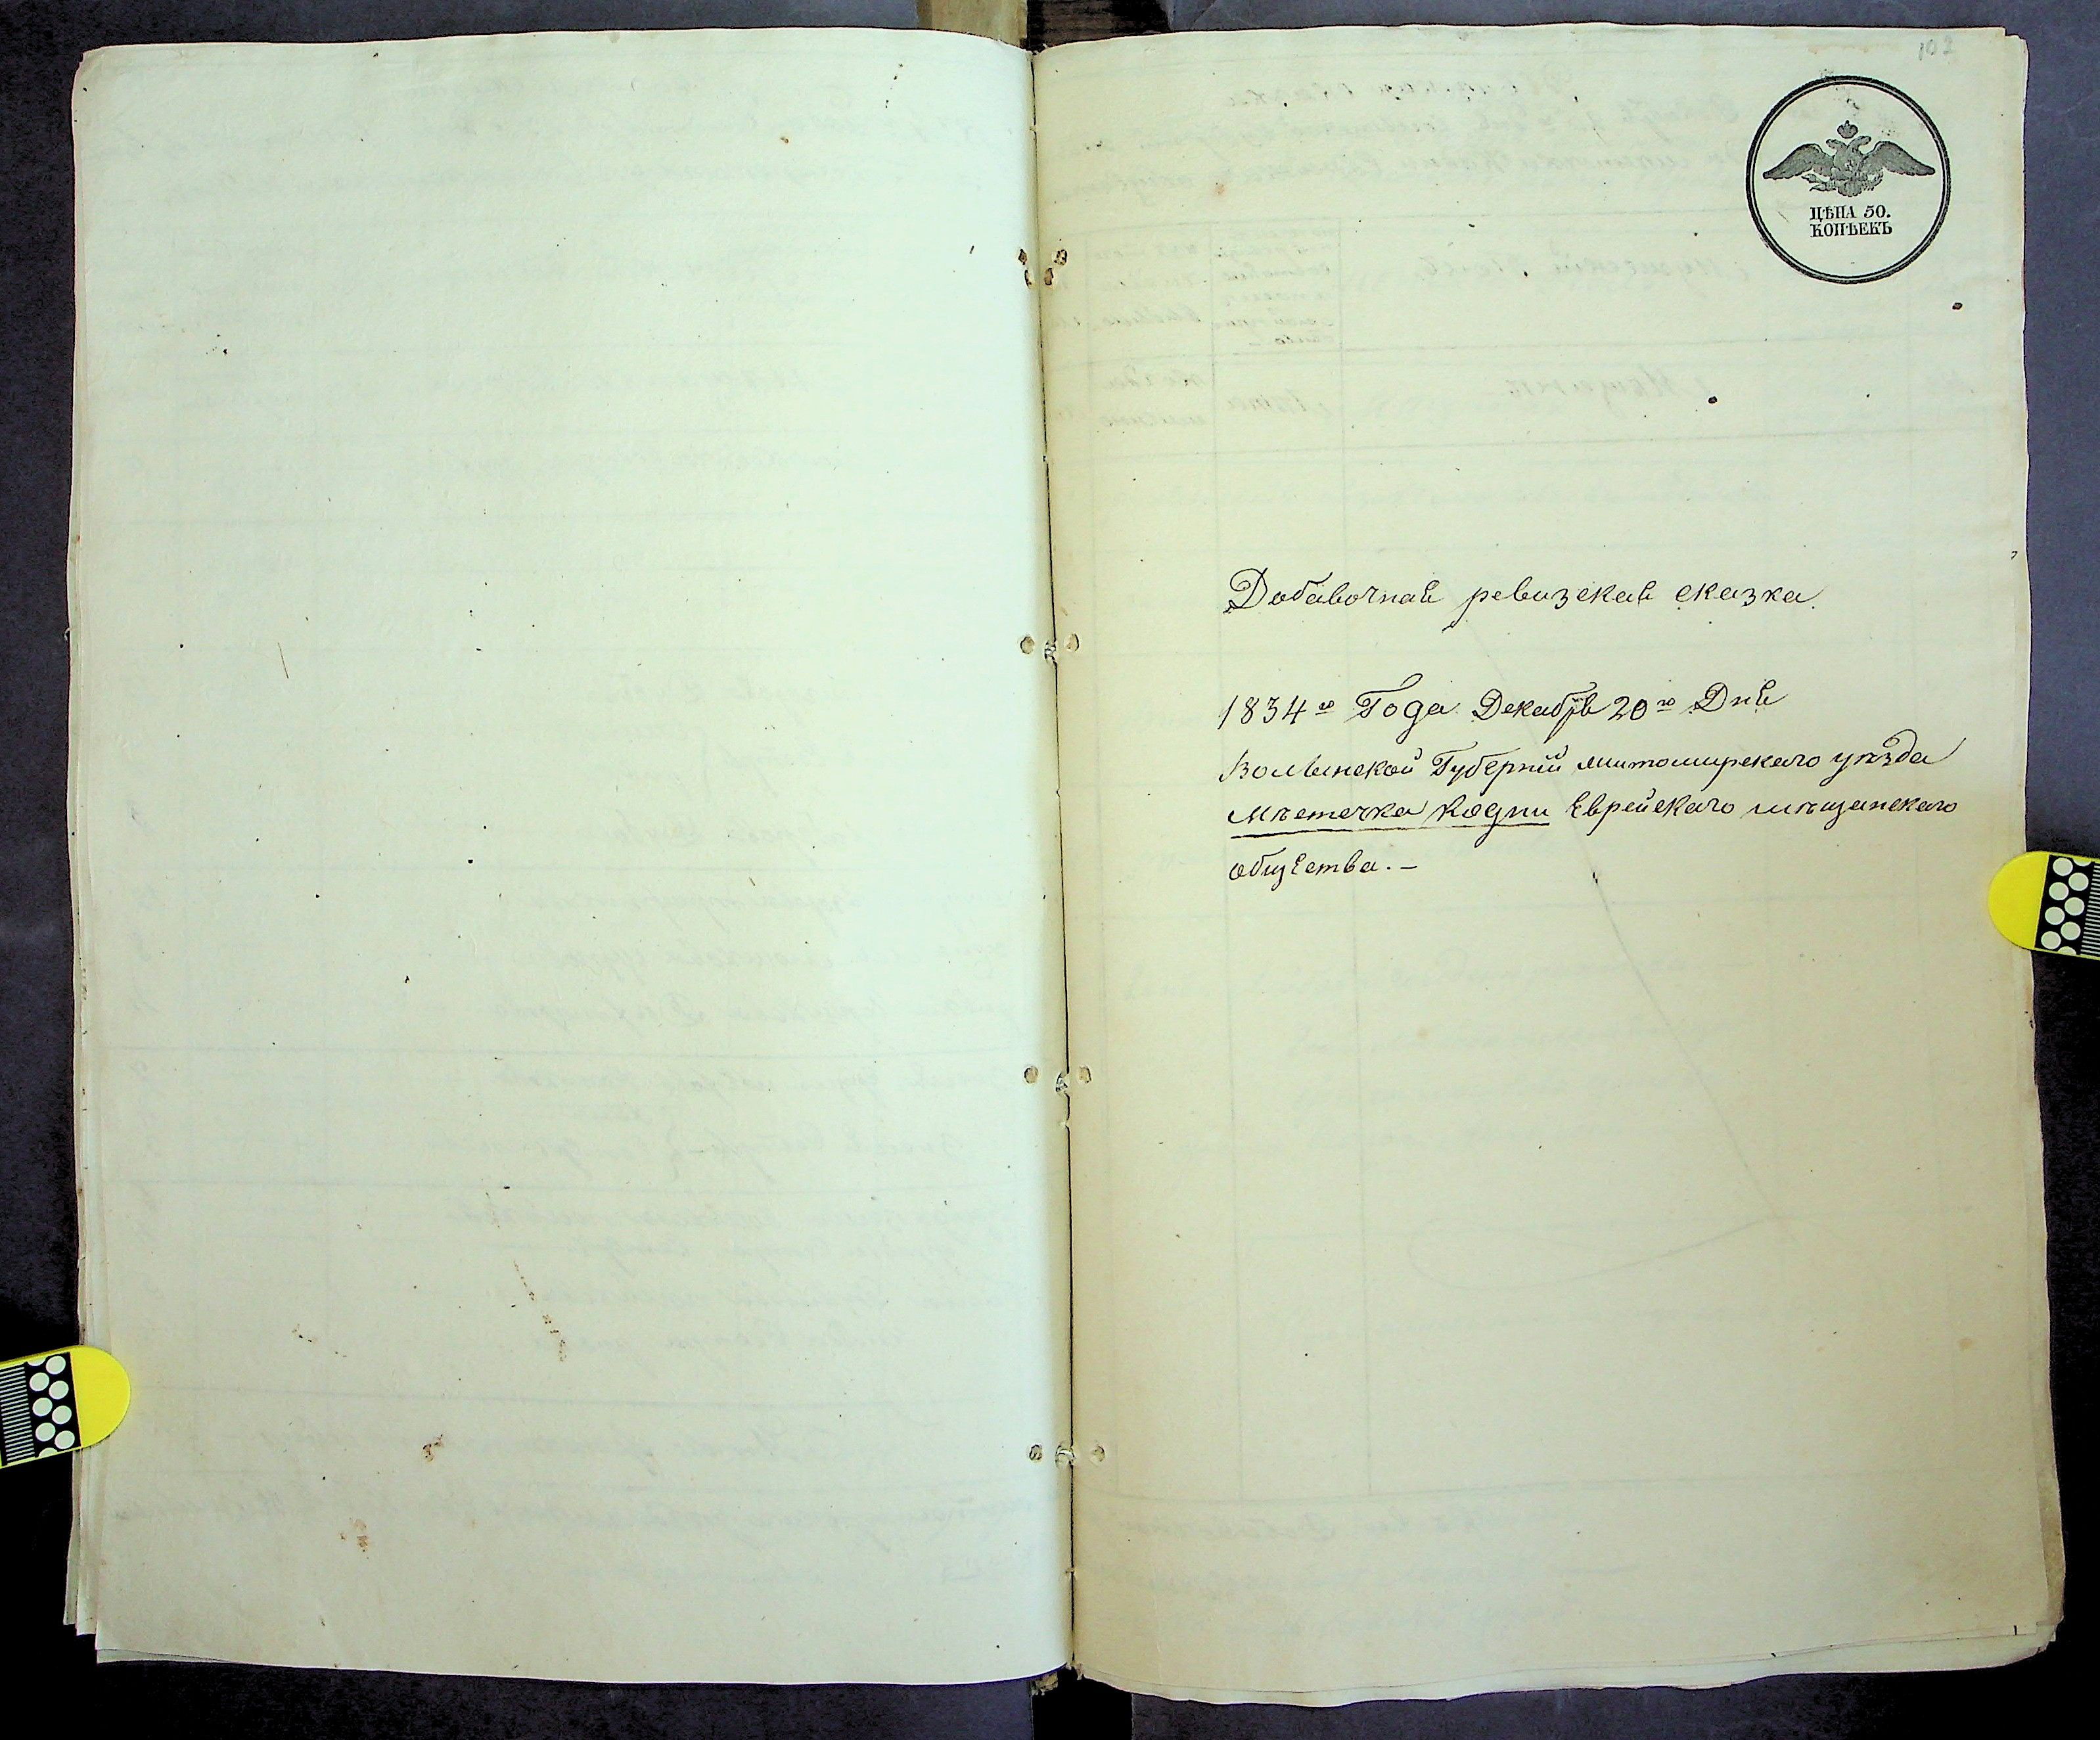 102
ЦѢНА 50.
КОПѢЕКЪ
Добавочная ревизская сказка.
1834го Года Декабря 20го Дня
Волынской Губерніи житомирскаго уѣзда
мѣстечка Кодни Еврейскаго мѣщанскаго
общества. —